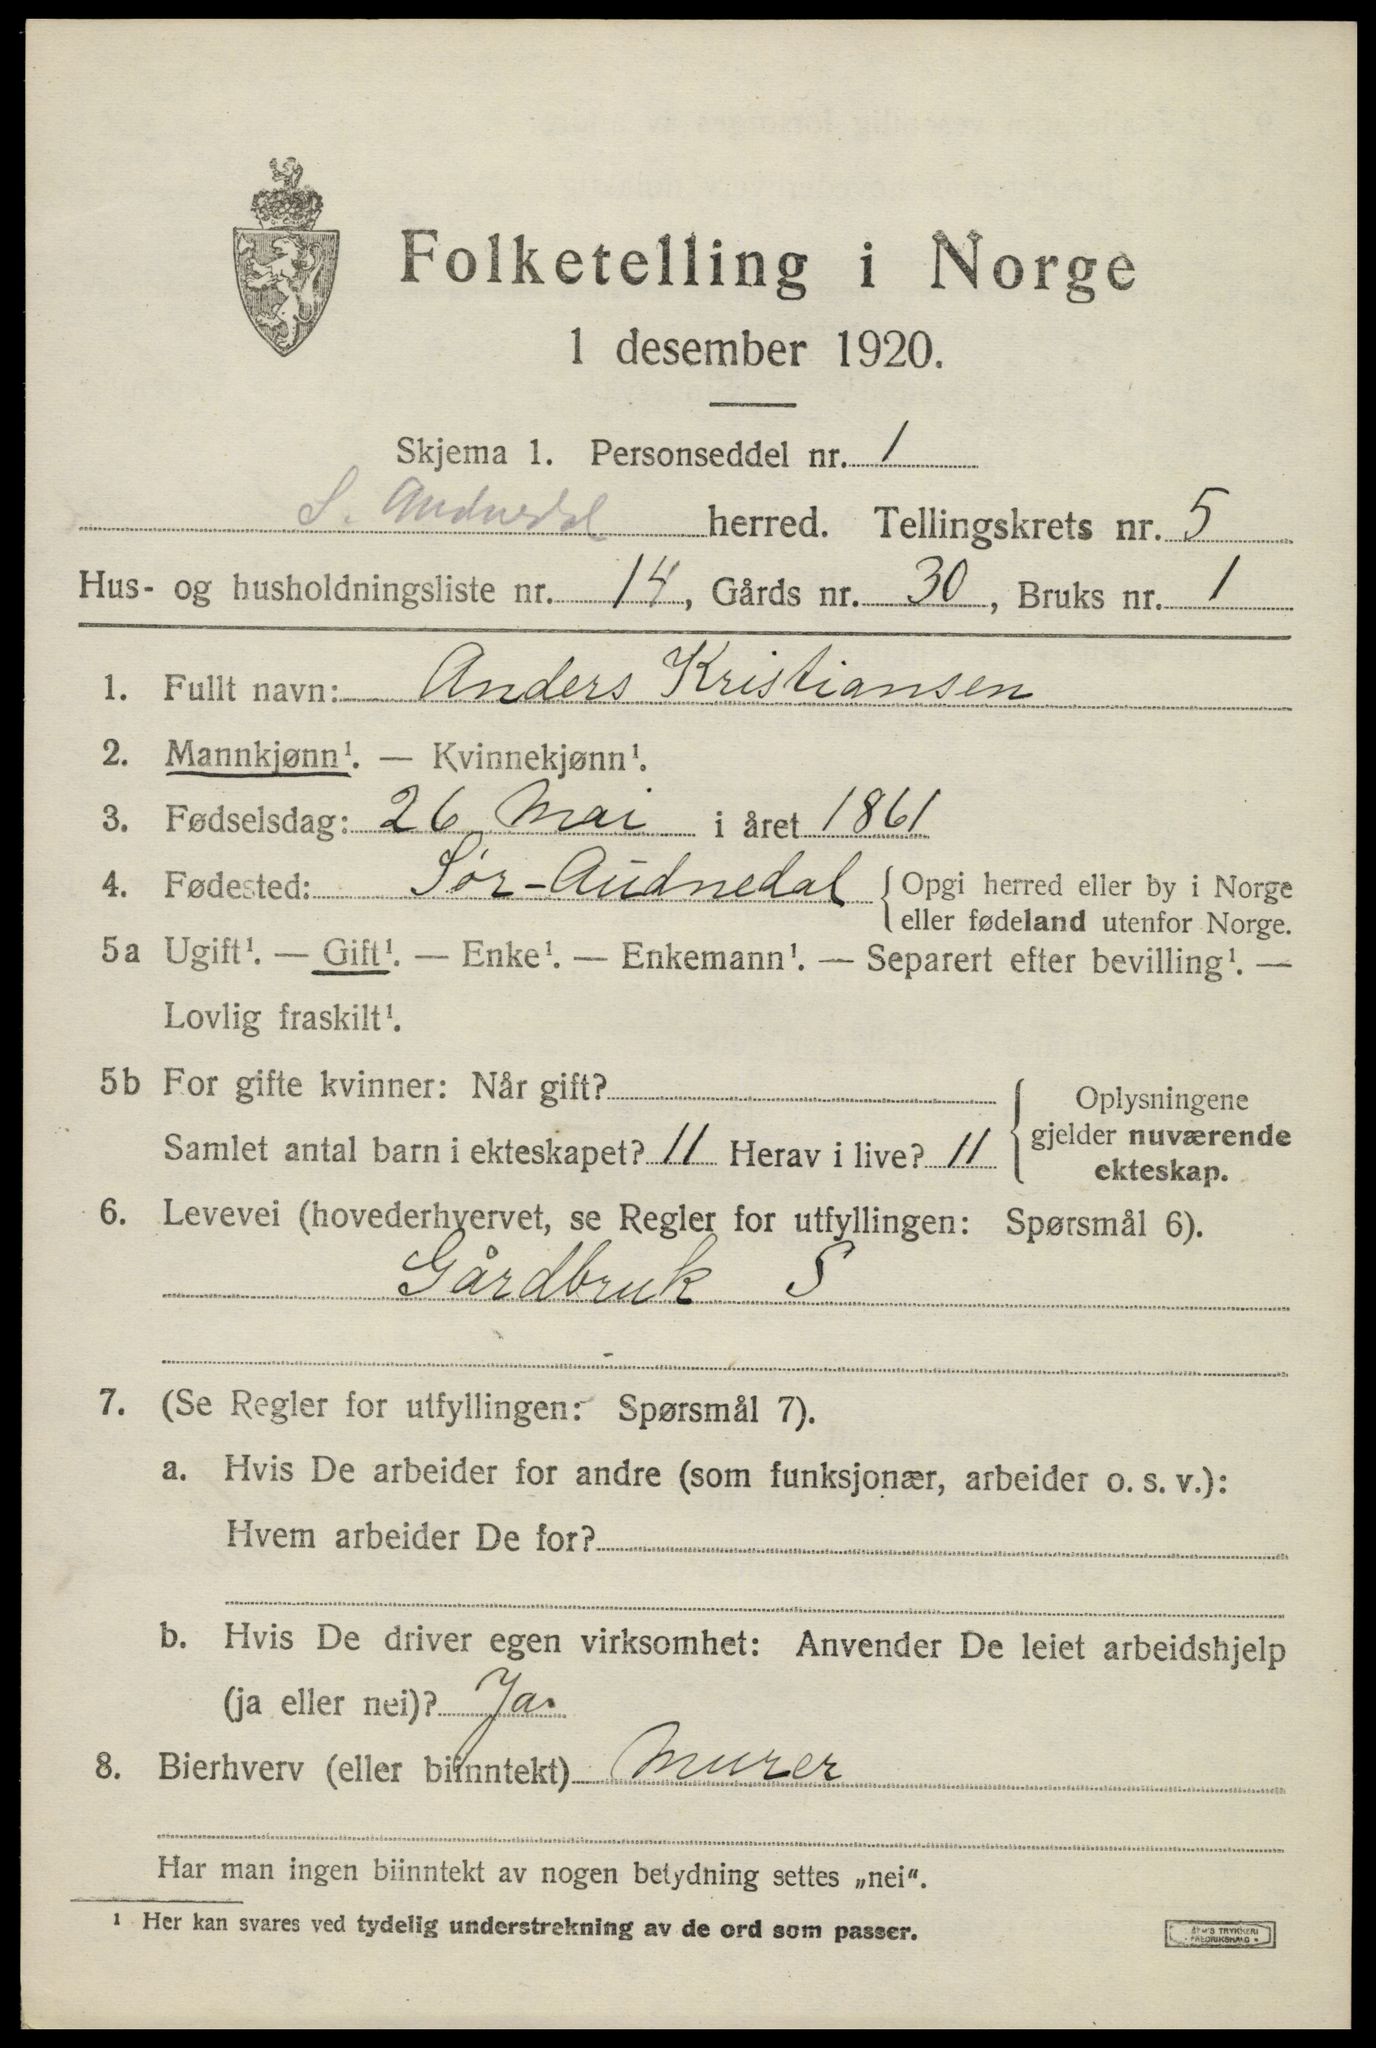 Folketelling i Norge
1 desember 1920.
Skjema 1. Personseddel nr. 1
S. Audnedal herred. Tellingskrets nr. 5
Hus- og husholdningsliste nr. 14, Gårds nr. 30, Bruks nr. 1
1. Fullt navn: Anders Kristiansen
2. Mannkjønn¹. — Kvinnekjønn¹.
3. Fødselsdag: 26 Mai i året 1861
4. Fødested: Sør-Audnedal { Opgi herred eller by i Norge
eller fødeland utenfor Norge.
5a Ugift¹. — Gift¹. — Enke¹. — Enkemann¹. — Separert efter bevilling¹. —
Lovlig fraskilt¹.
5b For gifte kvinner: Når gift? { Oplysningene
gjelder nuværende
Samlet antal barn i ekteskapet? 11 Herav i live? 11
ekteskap.
6. Levevei (hovederhvervet, se Regler for utfyllingen: Spørsmål 6).
Gårdbruk S
7. (Se Regler for utfyllingen: Spørsmål 7).
a. Hvis De arbeider for andre (som funksjonær, arbeider o. s. v.):
Hvem arbeider De for?
b. Hvis De driver egen virksomhet: Anvender De leiet arbeidshjelp
(ja eller nei)? Ja.
8. Bierhverv (eller biinntekt) Murer
Har man ingen biinntekt av nogen betydning settes „nei“.
¹ Her kan svares ved tydelig understrekning av de ord som passer.
TRYKKERI
FREDRIKSHALD